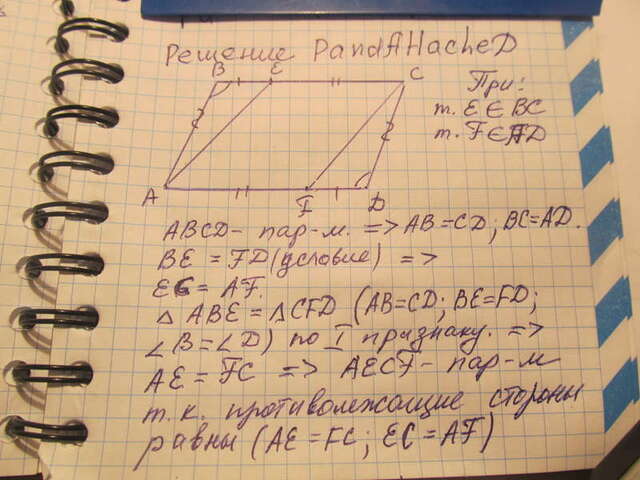 Решение PandAHacheD
B E C
При:
т. E ∈ BC
т. F ∈ AD
A F D
ABCD - пар-м. => AB=CD; BC=AD.
BE = FD (условие) =>
EC = AF.
△ ABE = △ CFD (AB=CD; BE=FD;
∠B=∠D) по I признаку. =>
AE = FC => AECF - пар-м
т.к. противолежащие стороны
равны (AE=FC; EC=AF)